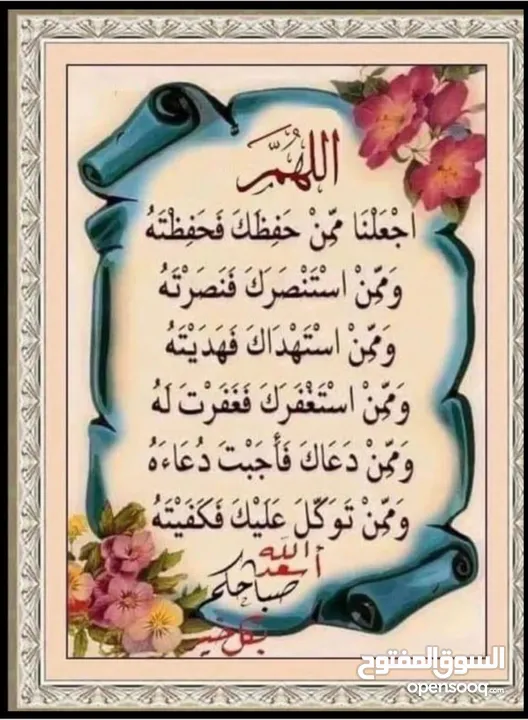 اللهُمَّ
اجْعَلْنَا مِمَّنْ حَفِظَكَ فَحَفِظْتَهُ
وَمِمَّنْ اسْتَنْصَرَكَ فَنَصَرْتَهُ
وَمِمَّنْ اسْتَهْدَاكَ فَهَدَيْتَهُ
وَمِمَّنْ اسْتَغْفَرَكَ فَغَفَرْتَ لَهُ
وَمِمَّنْ دَعَاكَ فَأَجَبْتَ دُعَاءَهُ
وَمِمَّنْ تَوَكَّلَ عَلَيْكَ فَكَفَيْتَهُ
أسعد الله
صباحكم
بكل خير
السوق المفتوح
opensooq.com